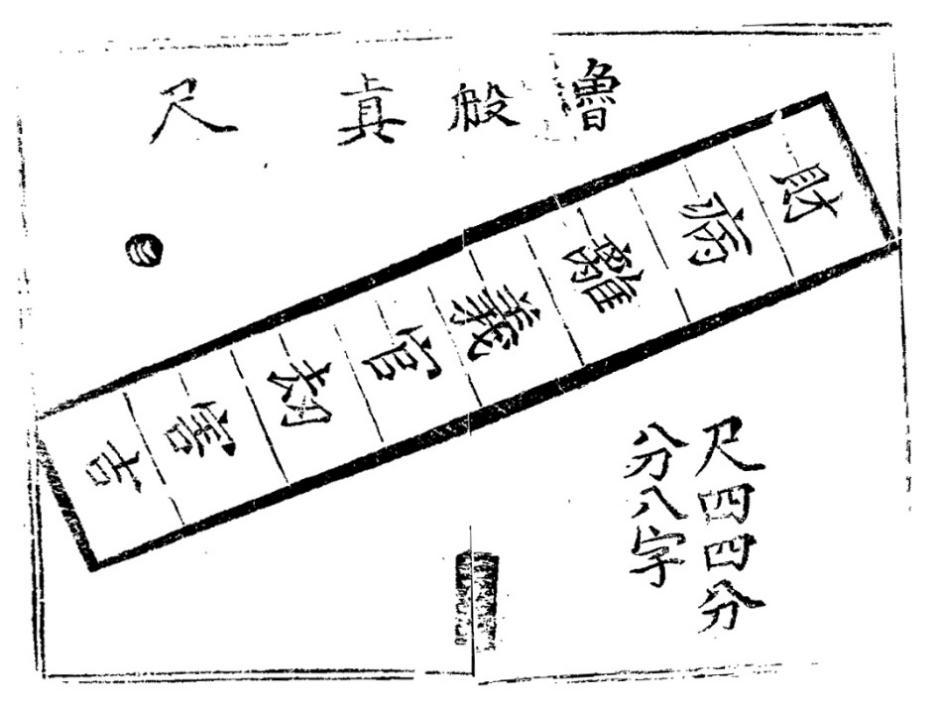 魯般真尺
財病離義官劫害吉
尺四四分
八分八字